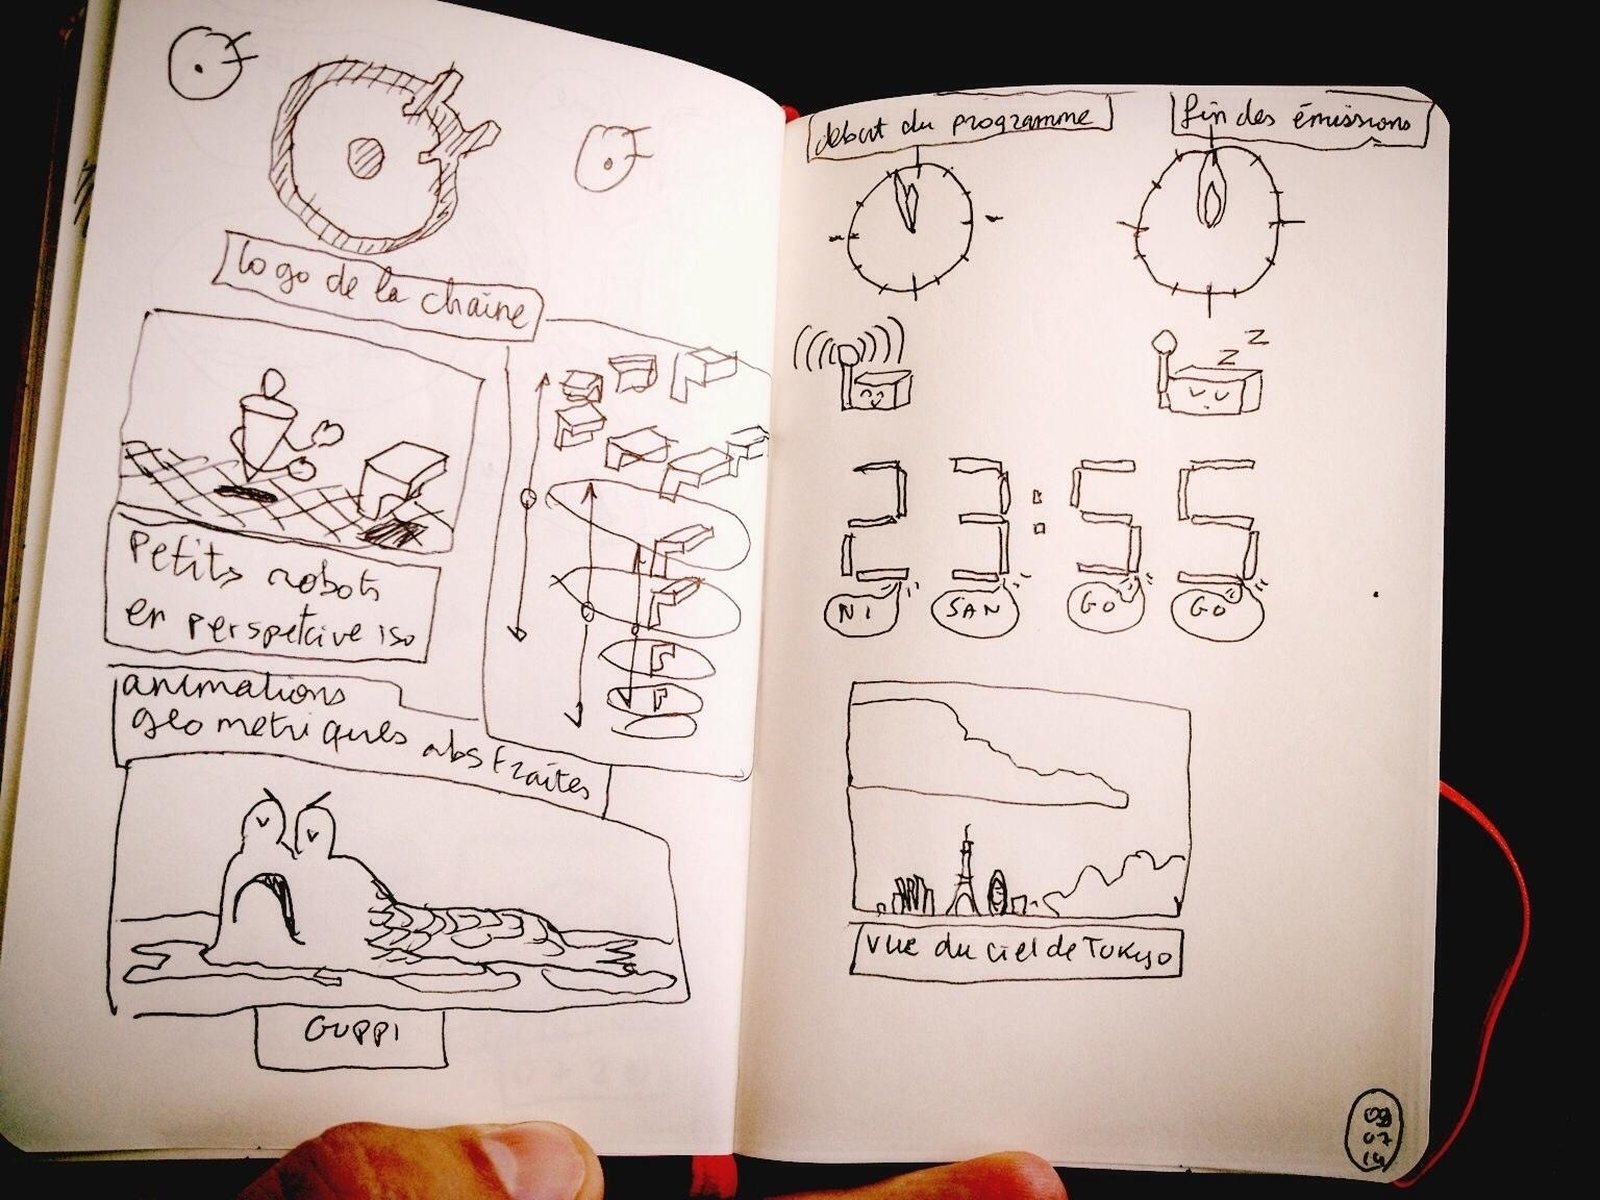 logo de la chaîne
Petits robots
en perspetcive iso
animations
géometriques abstraites
GUPPI
debut du programme
fin des émissions
z z
23:55
NI SAN GO GO
vue du ciel de Tokyo
09
07
14